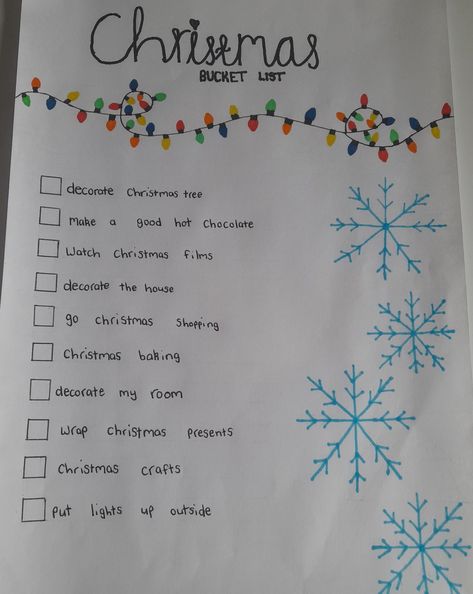 Christmas
BUCKET LIST
decorate Christmas tree
make a good hot chocolate
Watch Christmas films
decorate the house
go christmas shopping
Christmas baking
decorate my room
Wrap Christmas presents
Christmas crafts
Put lights up outside